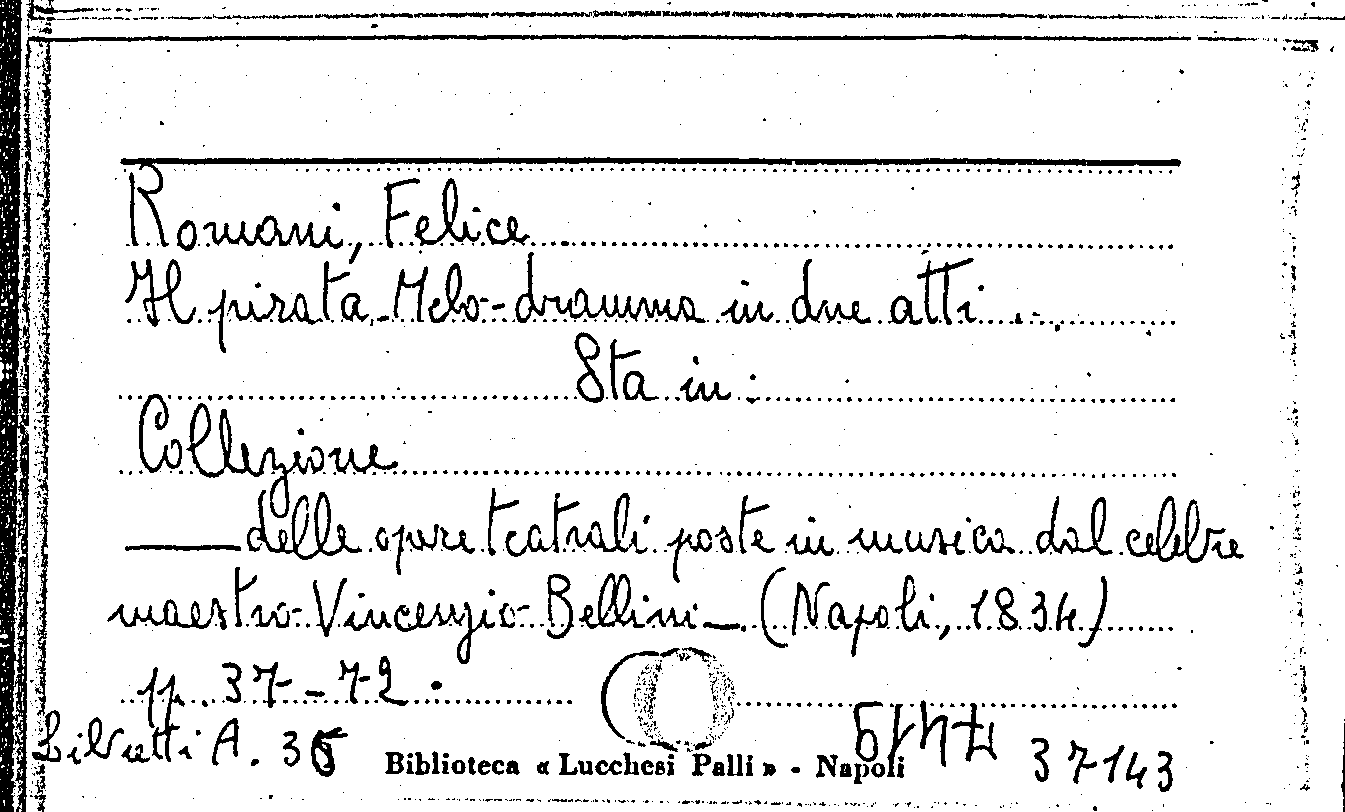 Romani, Felice
Il pirata. Melo-dramma in due atti ...
Sta in:
Collezione
—— delle opere teatrali poste in musica dal celebre
maestro Vincenzio Bellini — (Napoli, 1834)
pp. 37-72.
Libretti A. 36
Biblioteca « Lucchesi Palli » - Napoli
37143